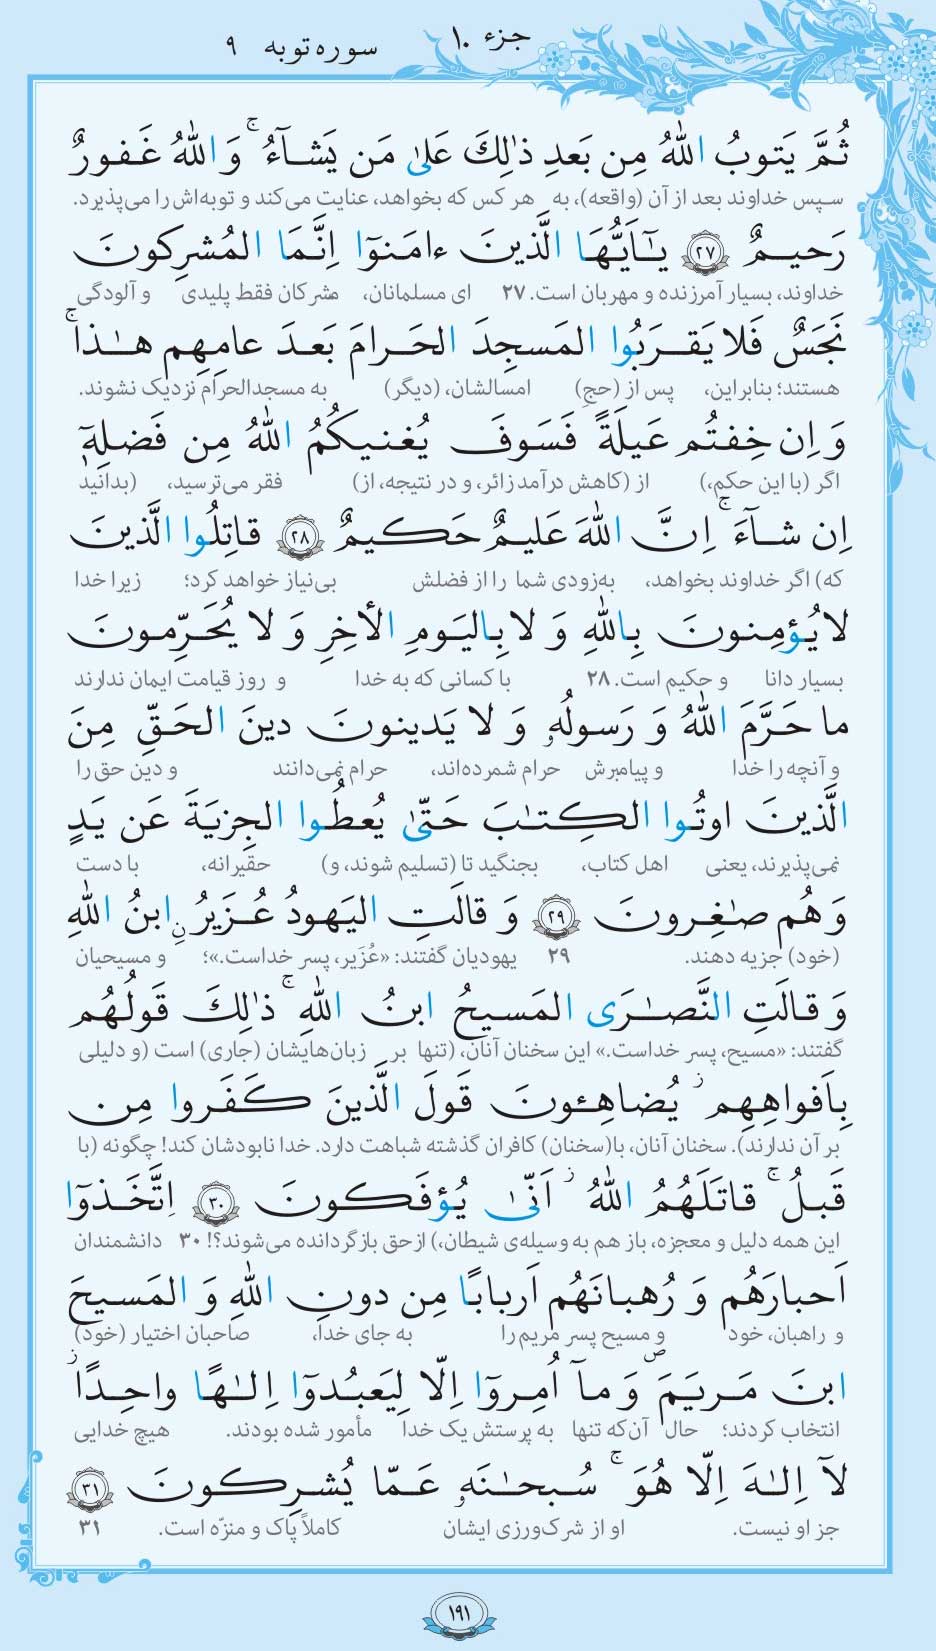 جزء ۱۰
سوره توبه ۹
ثُمَّ يَتوبُ اللّٰهُ مِن بَعدِ ذٰلِكَ عَلىٰ مَن يَشآءُ ۚ وَ اللّٰهُ غَفورٌ
سپس خداوند بعد از آن (واقعه)، به هر کس که بخواهد، عنایت می‌کند و توبه‌اش را می‌پذیرد.
رَحيمٌ ﴿۲۷﴾ يٰۤاَيُّهَا الَّذينَ ءامَنوٓا اِنَّمَا المُشرِكونَ
خداوند، بسیار آمرزنده و مهربان است. ۲۷ ای مسلمانان، مشرکان فقط پلیدی و آلودگی
نَجَسٌ فَلا يَقرَبُوا المَسجِدَ الحَرامَ بَعدَ عامِهِم هٰذا ۚ
هستند؛ بنابراین، پس از (حجِ) امسالشان، (دیگر) به مسجدالحرام نزدیک نشوند.
وَ اِن خِفتُم عَيلَةً فَسَوفَ يُغنيكُمُ اللّٰهُ مِن فَضلِهِۤ
اگر (با این حکم،) از (کاهش درآمد زائر، و در نتیجه، از) فقر می‌ترسید، (بدانید
اِن شآءَ ۚ اِنَّ اللّٰهَ عَليمٌ حَكيمٌ ﴿۲۸﴾ قاتِلُوا الَّذينَ
که) اگر خداوند بخواهد، به‌زودی شما را از فضلش بی‌نیاز خواهد کرد؛ زیرا خدا
لا يُؤمِنونَ بِاللّٰهِ وَ لا بِاليَومِ الأخِرِ وَ لا يُحَرِّمونَ
بسیار دانا و حکیم است. ۲۸ با کسانی که به خدا و روز قیامت ایمان ندارند
ما حَرَّمَ اللّٰهُ وَ رَسولُهٗ وَ لا يَدينونَ دينَ الحَقِّ مِنَ
و آنچه را خدا و پیامبرش حرام شمرده‌اند، حرام نمی‌دانند و دین حق را
الَّذينَ اوتُوا الكِتٰبَ حَتّىٰ يُعطُوا الجِزيَةَ عَن يَدٍ
نمی‌پذیرند، یعنی اهل کتاب، بجنگید تا (تسلیم شوند، و) حقیرانه، با دست
وَ هُم صٰغِرونَ ﴿۲۹﴾ وَ قالَتِ اليَهودُ عُزَيرٌ ۨابنُ اللّٰهِ
(خود) جزیه دهند. ۲۹ یهودیان گفتند: «عُزَیر، پسر خداست.»؛ و مسیحیان
وَ قالَتِ النَّصٰرَى المَسيحُ ابنُ اللّٰهِ ۚ ذٰلِكَ قَولُهُم
گفتند: «مسیح، پسر خداست.» این سخنان آنان، (تنها بر زبان‌هایشان (جاری) است (و دلیلی
بِاَفواهِهِم ز يُضاهِـٔونَ قَولَ الَّذينَ كَفَروا مِن
بر آن ندارند). سخنان آنان، با(سخنان) کافران گذشته شباهت دارد. خدا نابودشان کند! چگونه (با
قَبلُ ۚ قاتَلَهُمُ اللّٰهُ ز اَنّىٰ يُؤفَكونَ ﴿۳۰﴾ اِتَّخَذوٓا
این همه دلیل و معجزه، باز هم به وسیله‌ی شیطان،) از حق بازگردانده می‌شوند؟! ۳۰ دانشمندان
اَحبارَهُم وَ رُهبانَهُم اَربابًا مِن دونِ اللّٰهِ وَ المَسيحَ
و راهبان، خود و مسیح پسر مریم را به جای خدا، صاحبان اختیار (خود)
ابنَ مَريَمَ ص وَ مآ اُمِروٓا اِلّا لِيَعبُدوٓا اِلٰهًا واحِدًا ز
انتخاب کردند؛ حال آن‌که تنها به پرستش یک خدا مأمور شده بودند. هیچ خدایی
لآ اِلٰهَ اِلّا هُوَ ۚ سُبحٰنَهٗ عَمّا يُشرِكونَ ﴿۳۱﴾
جز او نیست. او از شرک‌ورزی ایشان کاملاً پاک و منزّه است. ۳۱
۱۹۱